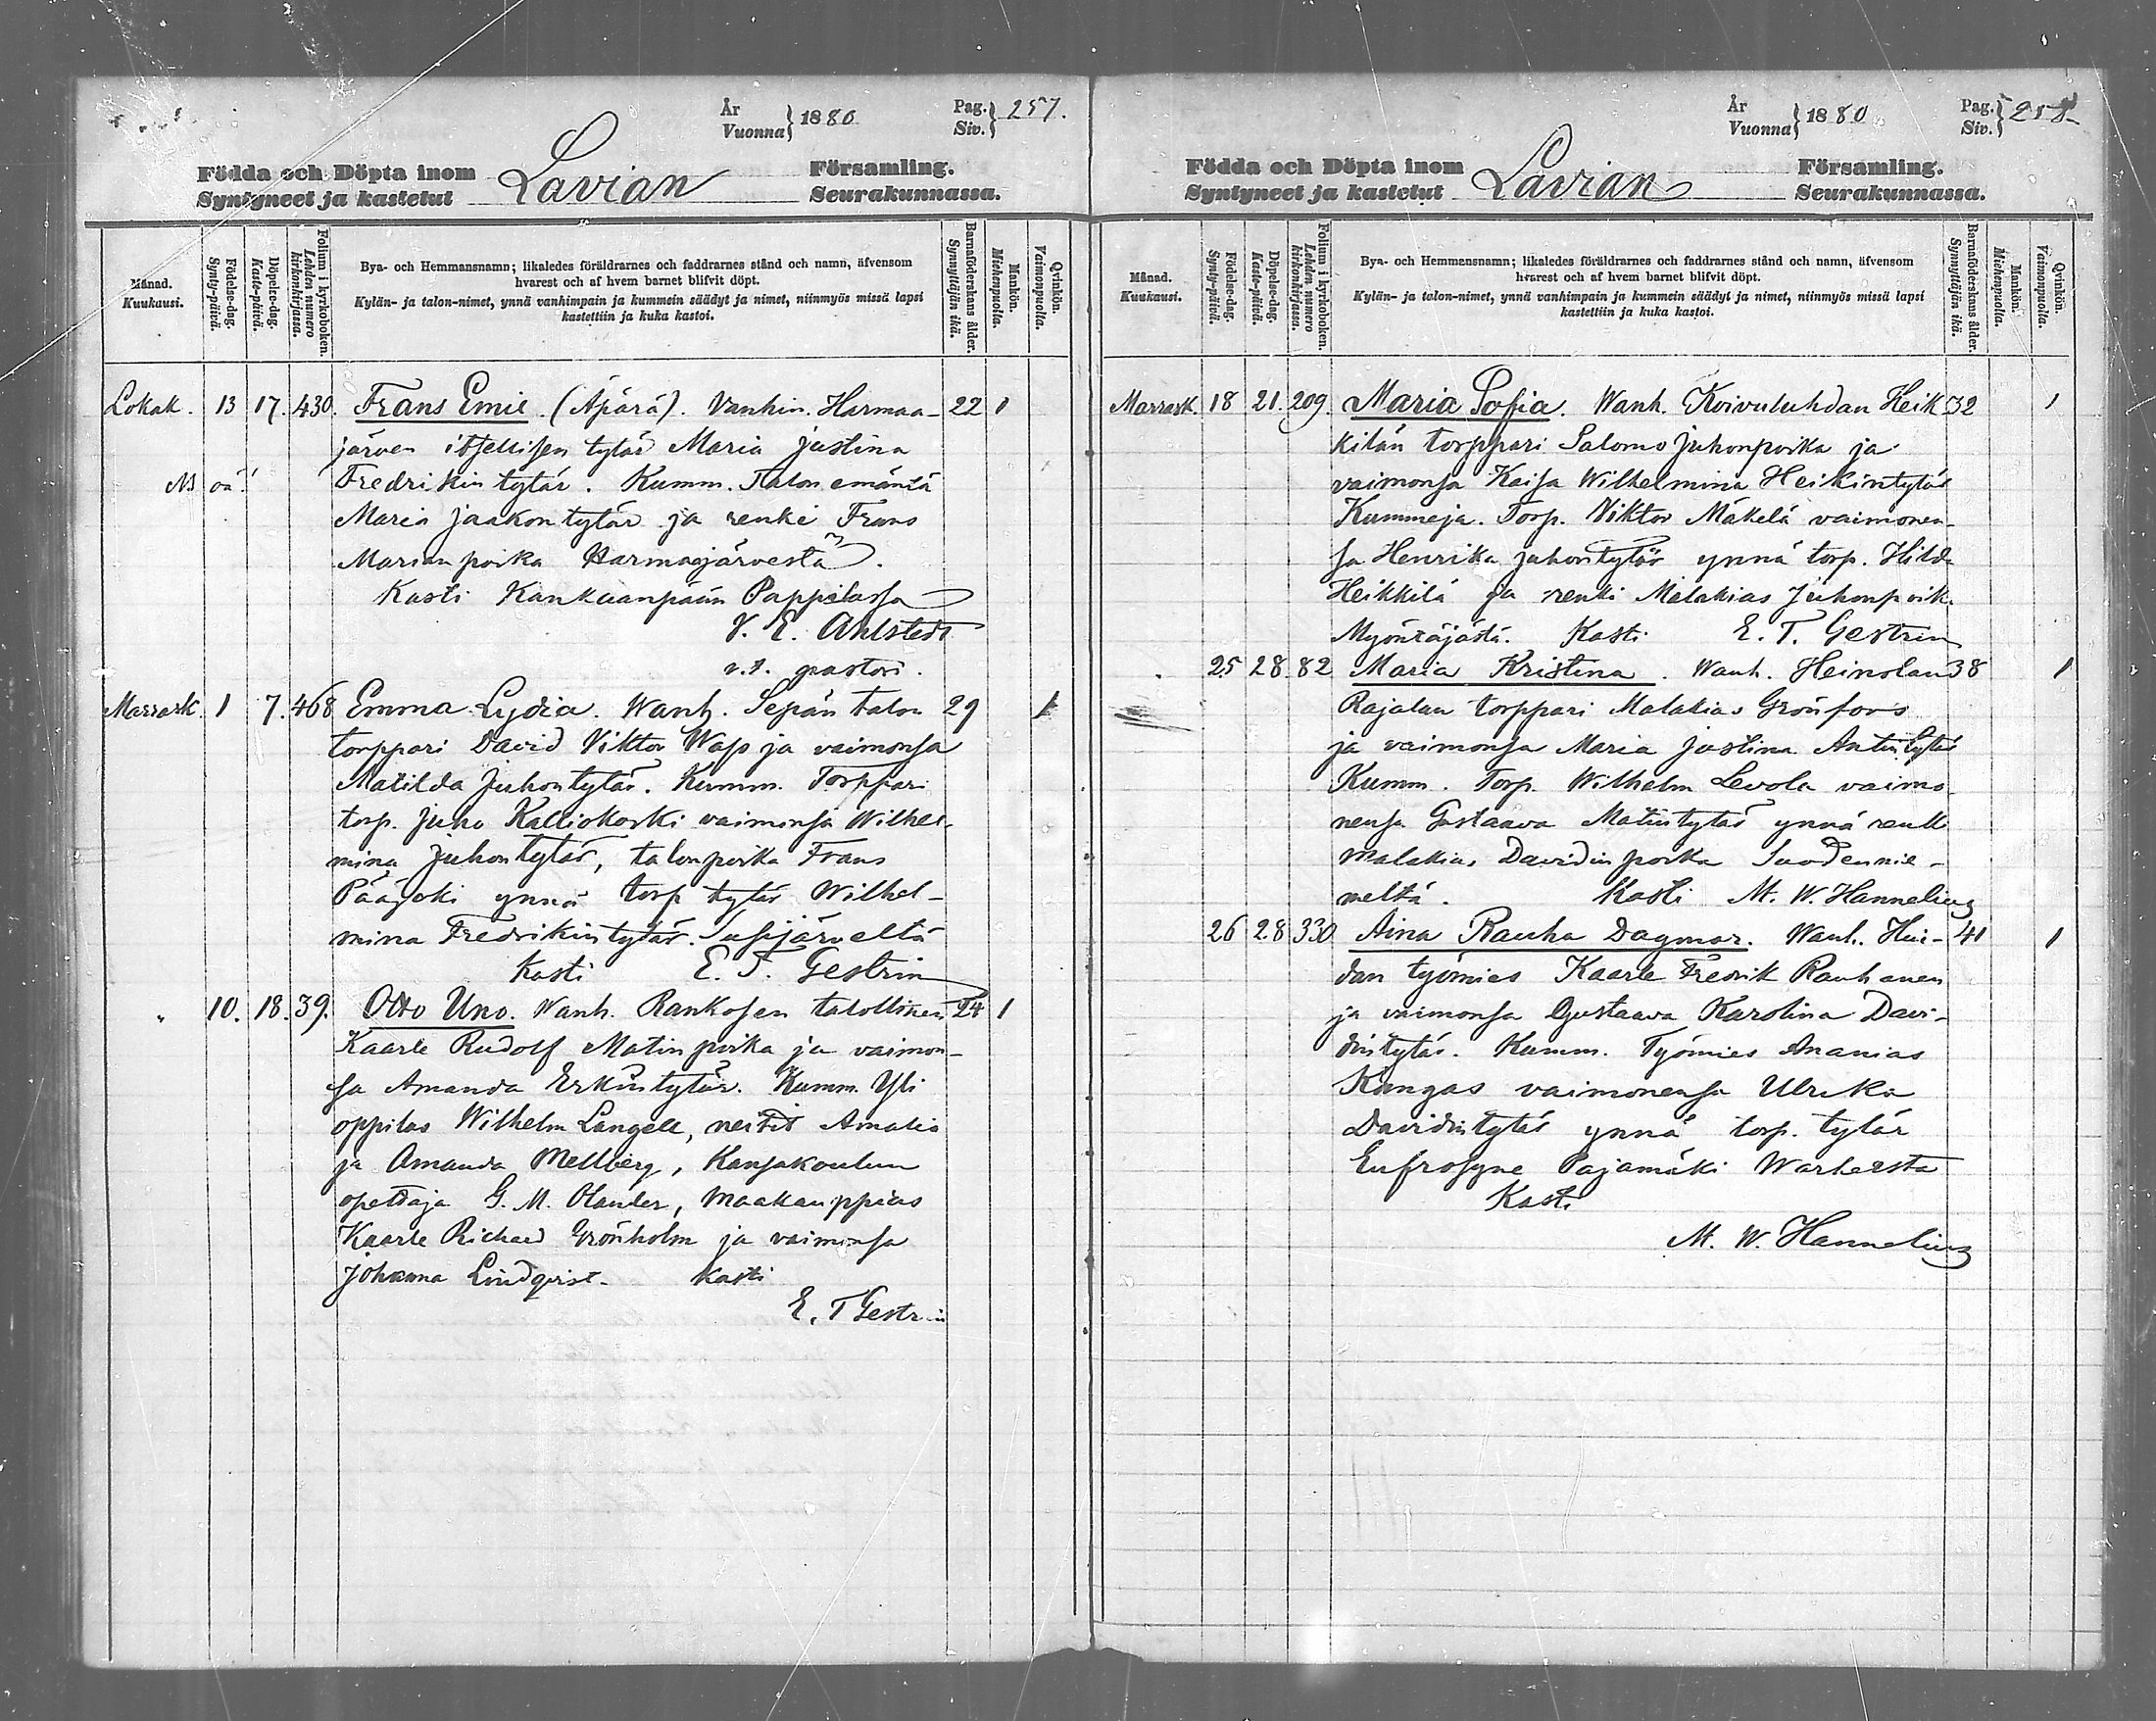 År
Vuonna } 1880
Pag.
Siv. } 257.
Födda och Döpta inom
Syntyneet ja kastetut
Lavian
Församling.
Seurakunnassa.
Månad.
Kuukausi.
Födelse-dag.
Synty-päivä.
Döpelse-dag.
Kaste-päivä.
Folium i kyrkoboken.
Lehden numero kirkonkirjassa.
Bya- och Hemmansnamn; likaledes föräldrarnes och faddrarnes stånd och namn, äfvensom
hvarest och af hvem barnet blifvit döpt.
Kylän- ja talon-nimet, ynnä vanhimpain ja kummein säädyt ja nimet, niinmyös missä lapsi
kastettiin ja kuka kastoi.
Barnaföderskans ålder.
Synnyttäjän ikä.
Mankön.
Miehenpuolia.
Qvinkön.
Vaimonpuolia.
Lokak. 13 17. 430. Frans Emil (Äpärä). Vanhin. Harmaa- 22 1
järven itsellisen tytär Maria Justina
Fredrikin tytär. Kumm. Talon emäntä
Maria Jaakontytär ja renki Frans
Marian poika Harmaajärvestä.
Kasti Kankaanpään Pappilassa
V. E. Ahlstedt
v.t. pastori.
Marrask. 1 7. 468 Emma Lydia. Wanh. Sepän talon 29 1
torppari David Viktor Wass ja vaimonsa
Matilda Juhontytär. Kumm. Torppari
torp. Juho Kalliokoski vaimonsa Wilhel-
mina Juhontytär, talonpoika Frans
Pääjoki ynnä torp tytär Wilhel-
mina Fredrikintytär. Susijärveltä
Kasti E. T. Gestrin
„ 10. 18. 39. Otto Uno. Wanh. Rankosen talollinen 24 1
Kaarle Rudolf Matin poika ja vaimon-
sa Amanda Erkintytär. Kumm. Yli
oppilas Wilhelm Langell, neidit Amalia
ja Amanda Mellberg, Kansakoulun
opettaja G. M. Olander, Maakauppias
Kaarle Richard Grönholm ja vaimonsa
Johanna Lindqvist. Kasti
E. T Gestrin
År
Vuonna } 1880
Pag.
Siv. } 258
Födda och Döpta inom
Syntyneet ja kastetut
Lavian
Församling.
Seurakunnassa.
Månad.
Kuukausi.
Födelse-dag.
Synty-päivä.
Döpelse-dag.
Kaste-päivä.
Folium i kyrkoboken.
Lehden numero kirkonkirjassa.
Bya- och Hemmansnamn; likaledes föräldrarnes och faddrarnes stånd och namn, äfvensom
hvarest och af hvem barnet blifvit döpt.
Kylän- ja talon-nimet, ynnä vanhimpain ja kummein säädyt ja nimet, niinmyös missä lapsi
kastettiin ja kuka kastoi.
Barnaföderskans ålder.
Synnyttäjän ikä.
Mankön.
Miehenpuolia.
Qvinkön.
Vaimonpuolia.
Marrask. 18 21. 209. Maria Sofia. Wanh. Koivuluhdan Heik 32 1
kilän torppari Salomo Juhonpoika ja
vaimonsa Kaisa Wilhelmina Heikintytär
Kummeja. Torp. Viktor Mäkelä vaimonen-
sa Henrika Juhontytär ynnä torp. Hilda
Heikkilä ja renki Malakias Juhonpoik.
Myöntäjästä. Kasti E. T. Gestrin
„ 25 28. 82 Maria Kristina. Wanh. Heinolan 38 1
Rajalan torppari Malakias Grönfors
ja vaimonsa Maria Justina Antintytär
Kumm. Torp. Wilhelm Levola vaimo
nensa Gustaava Matintytär ynnä renki
Malakias Davidin poika Suodennie-
meltä. Kasti M. W. Hannelius
26 28 330 Aina Rauha Dagmar. Wanh. Hui- 41 1
dan työmies Kaarle Fredrik Rauhanen
ja vaimonsa Gustaava Karolina Davi-
dintytär. Kumm. Työmies Ananias
Kangas vaimonensa Ulrika
Davidintytär ynnä torp. tytär
Eufrosyne Pajamäki Warheesta
Kasti
M. W. Hannelius